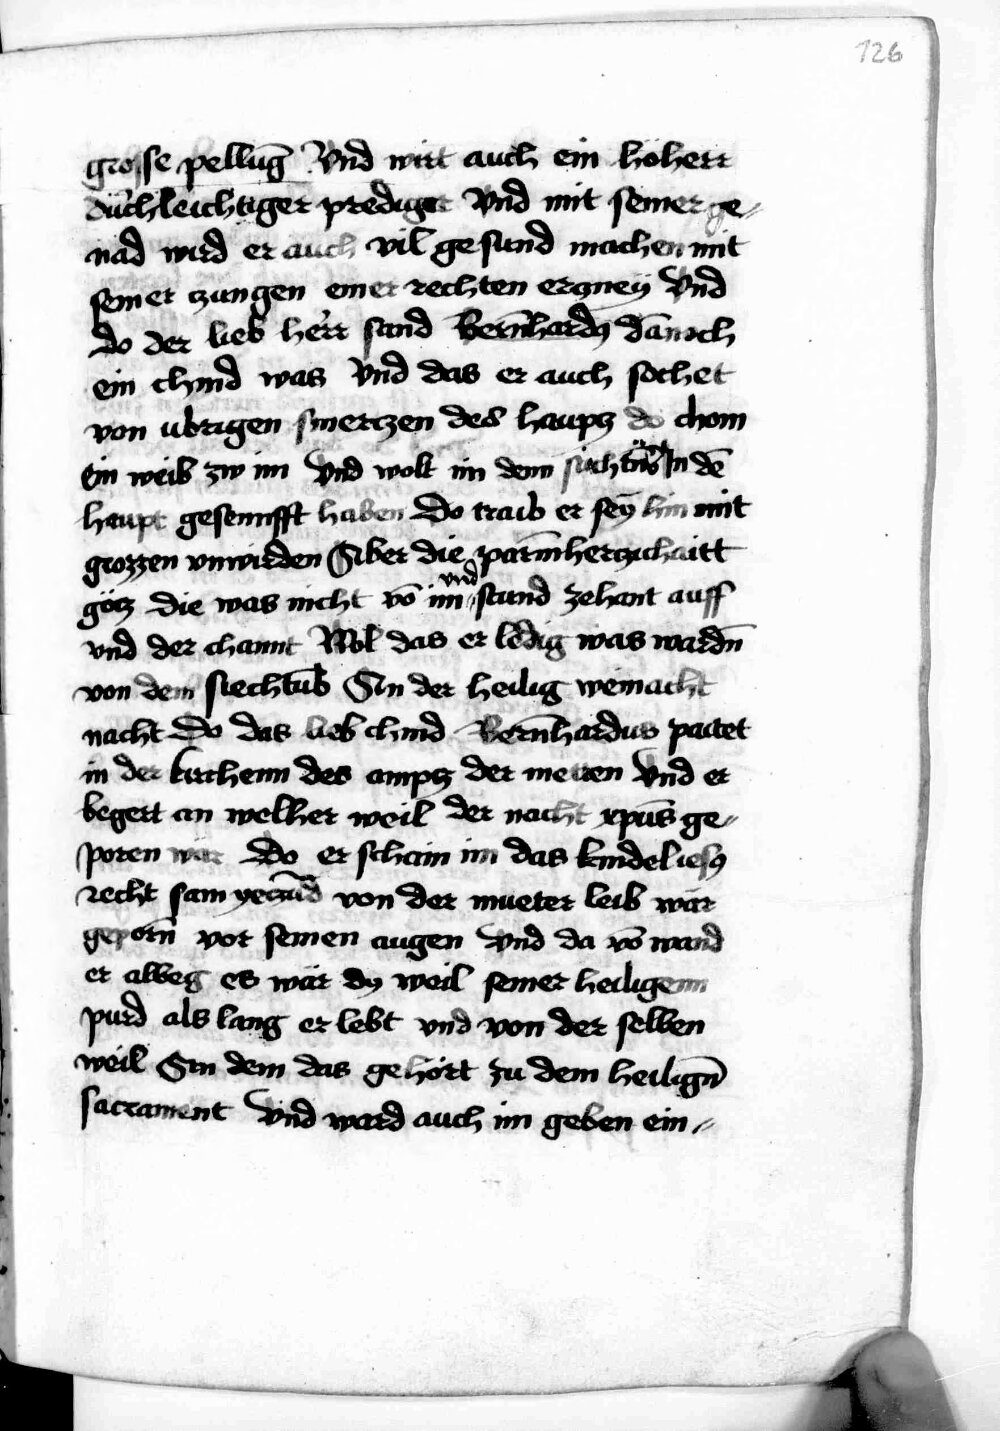 126
grosse pellug̅ Vnd wirt auch ein hoherr
durchleichtiger prediger Vnd mit seiner ge⸗
nad wird er auch vil gesund machen mit
seiner zungen einer rechten erczney Vnd
do der lieb herr sand Bern̅hardꝰ dan̅och
ein chind was Vnd das er auch sochet
von ubrigen smerczen des haupcz do chom
Ein weib zw im Vnd wolt im denn siechtu̅b In de̅
haupt gesennfft haben Do traib er sey hin mit
grozzen vnwirden Aber die parm̅herczichaitt
gotz die was nicht vo̅ im vnd stund zehant auff
vnd der channt Wol das er ledig was wardn̅
von dem siechtu̅b An der heilig weinacht
nacht Do das lieb chind Bern̅hardus paitet
in der kirchenn des ampcz der metten Vnd er
begert an welher weil der nacht xpu̅s ge⸗
poren wär Do erschain im das kindel iesꝰ
recht sam yeczu̅d von der mueter leib wär
geporn̅ vor seinen augen Vnd da vo̅ wand
er albeg es wär dy weil seiner heiligenn
purd als lang er lebt vnd von der selben
weil An dem das gehört zu dem heilign̅
sacrament Vnd ward auch im geben ein⸗